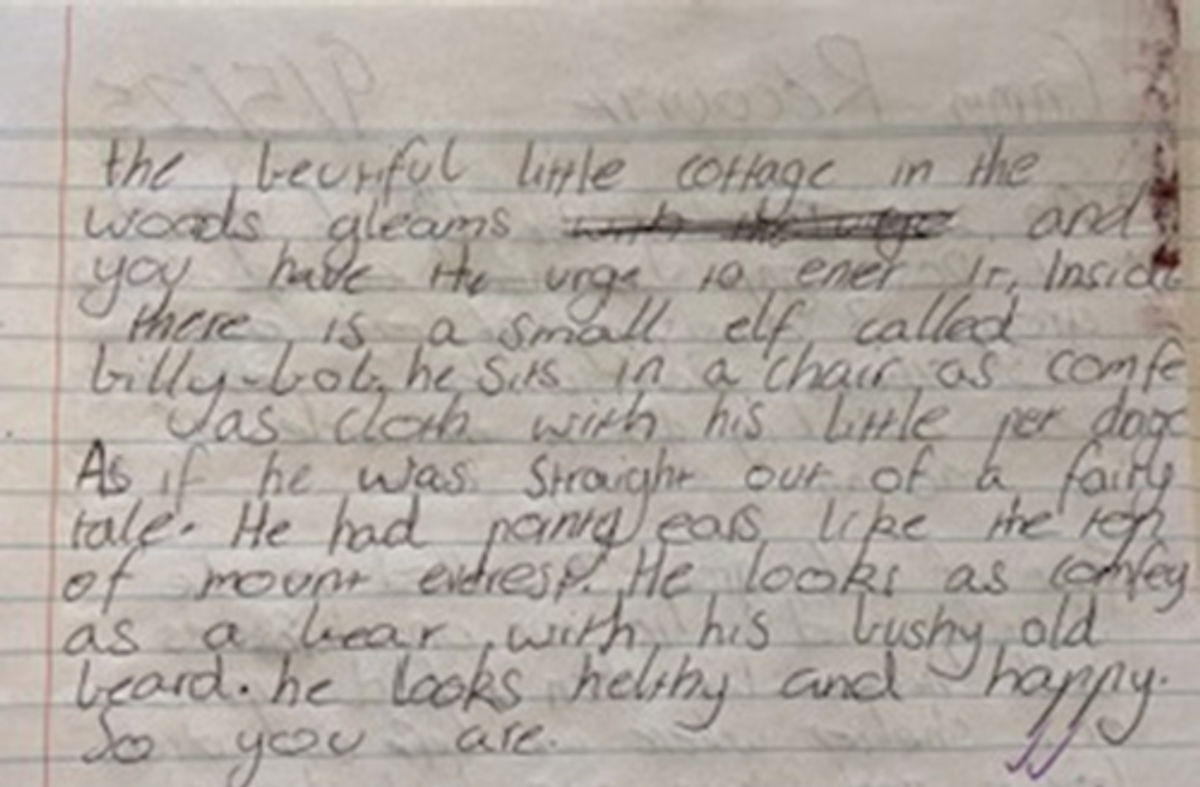 the beutiful little cottage in the
woods gleams and
you have the urge to ener it, Inside
there is a small elf called
billy-bob, he sits in a chair as comfe
as cloth with his little pet doge
As if he was straight out of a fairy
tale. He had ears like the top
of mount everest. He looks as comfey
as a bear with his bushy old
beard. he looks helthy and happy.
So you are.